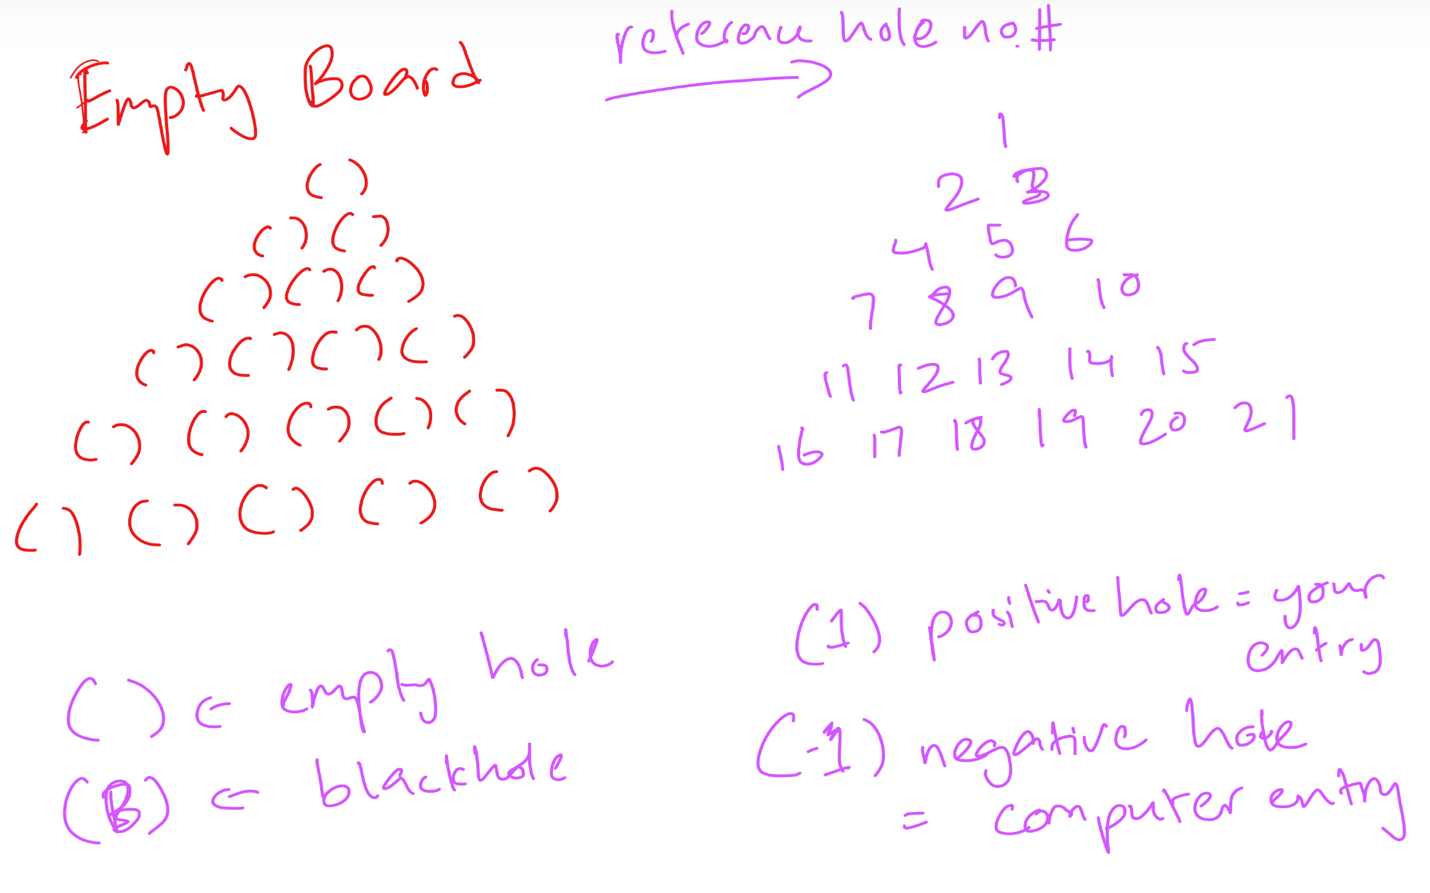 Empty Board
reference hole no.#
( )
( ) ( )
( ) ( ) ( )
( ) ( ) ( ) ( )
( ) ( ) ( ) ( ) ( )
( ) ( ) ( ) ( ) ( )
1
2 3
4 5 6
7 8 9 10
11 12 13 14 15
16 17 18 19 20 21
( ) ← empty hole
(B) ← blackhole
(1) positive hole = your
entry
(-1) negative hole
= computer entry